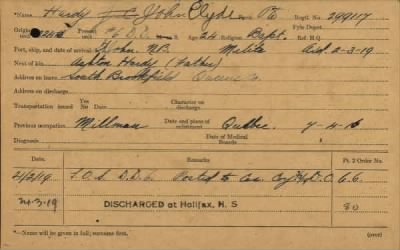 *Name Hardy J C John Clyde Rank Pte Regtl. No. 299117
Original unit 246 Present unit #6 D.D. Age 24 Religion Bapt. Fyle Depot Ref. H.Q.
Port, ship, and date of arrival St John N.B. Melita 2-3-19
Next of kin Ashton Hardy (Father)
Address on leave South Brookfield Queens Co.
Address on discharge
Transportation issued Character on discharge
Previous occupation Millman Date and place of enlistment Quebec 7-4-16
Diagnosis Date of Medical Boards
Date Remarks Pt. 2 Order No.
21/2/19 S.O.S. D.D.6. Posted to Cas. Coy #6 D.D. 66
24-3-19 DISCHARGED at Halifax, N. S 80
*—Name will be given in full; surname first. (over)